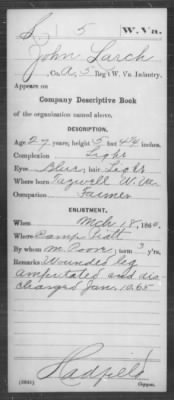 S 5 W. Va.
John Larch
, Co. A, 5 Reg't W. Va. Infantry.
Appears on
Company Descriptive Book
of the organization named above.
DESCRIPTION.
Age 27 years; height 5 feet 4¾ inches.
Complexion Light
Eyes Blue; hair Light
Where born Tazwell W. Va.
Occupation Farmer
ENLISTMENT.
When Mch 18, 186
Where Camp Piatt
By whom M. Poore; term 3 y'rs.
Remarks Wounded leg
amputated and dis
charged Jan. 10. 65
Hadfield
Copyist.